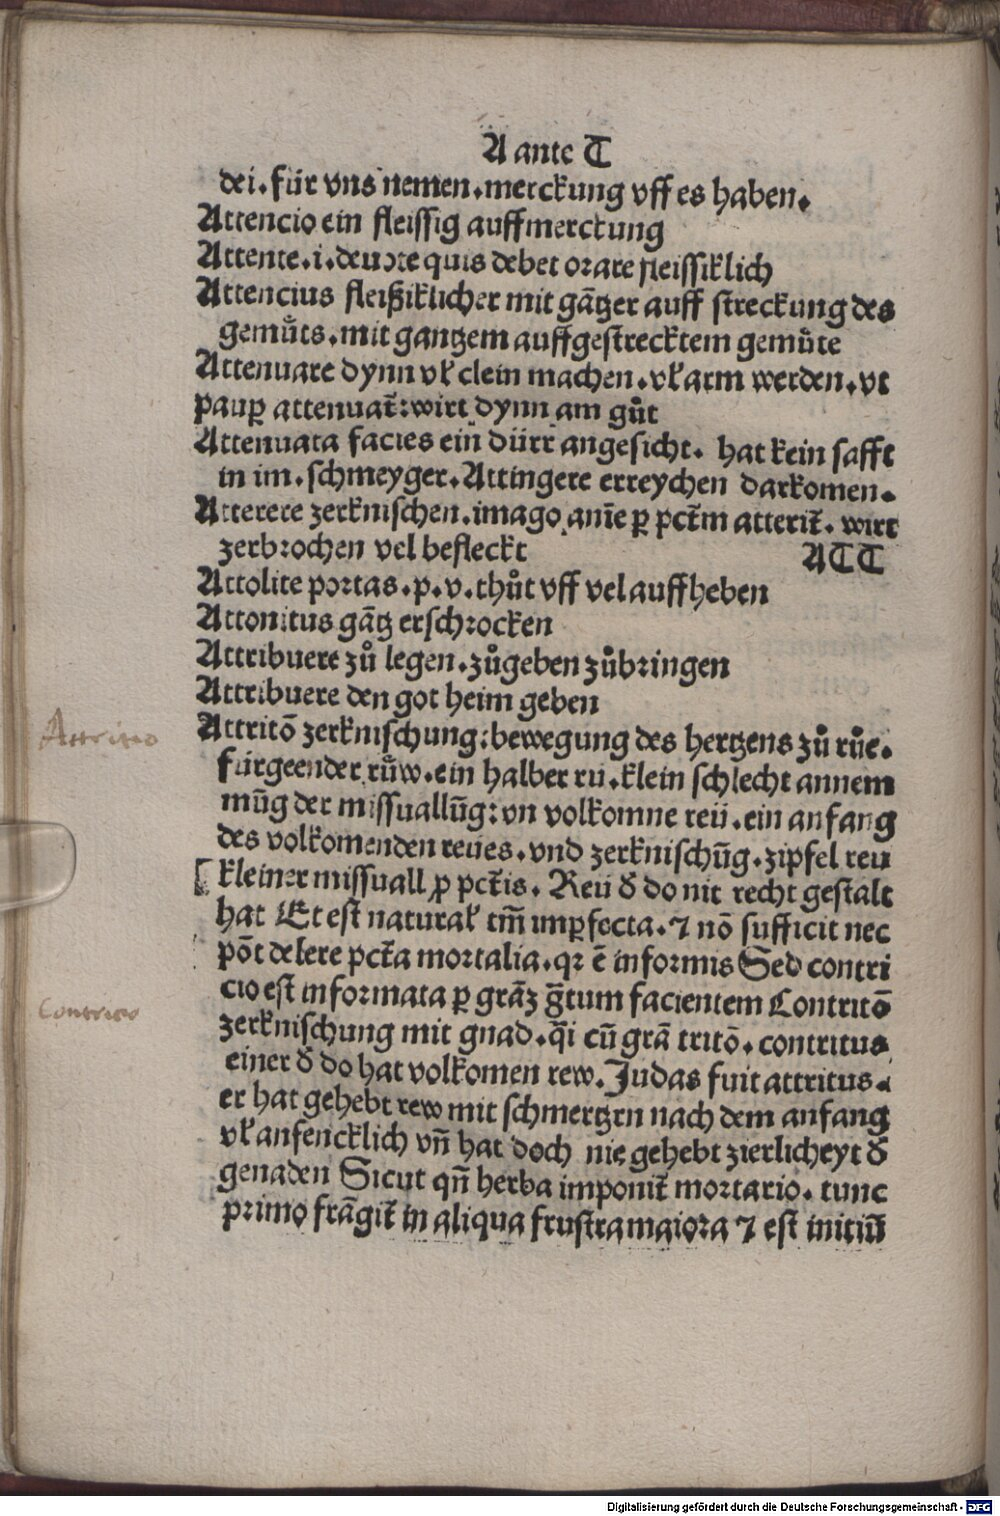 A ante T
dei. für vns nemen. merckung vff es haben.
Attencio ein fleissig auffmerckung
Attente. i. deuote quis debet orare fleissiklich
Attencius fleißiklicher mit gãtzer auff streckung des
gemůts. mit gantzem auffgestrecktem gemůte
Attenuare dynn vł clein machen. vł arm werden. vt
pauꝑ attenuat̃: wirt dynn am gůt
Attenuata facies ein dürr angesicht. hat kein safft
in im. schmeyger. Attingere erreychen darkomen.
Atterere zerknischen. imago anie̅ ꝑ pct̃m atterit̃. wirt
zerbrochen vel befleckt
ATT
Attolite portas. p. v. thůt vff vel auffheben
Attonitus gãtz erschrocken
Attribuere zů legen. zůgeben zůbringen
Attribuere den got heim geben
Attritõ zerknischung: bewegung des hertzens zů růe.
fürgeender růw. ein halber ru. klein schlecht annem
mũg der missuallũg: vn volkomne reü. ein anfang
des volkomenden reües. vnd zerknischũg. zipfel reu
kleiner missuall ꝓ pct̃is. Reü ð do nit recht gestalt
hat Et est natural̃ tm̃ imꝑfecta. ⁊ nõ sufficit nec
põt delere pct̃a mortalia. qꝛ ẽ informis Sed contri
cio est informata ꝑ grãꝫ g̃tum facientem Contritõ
zerknischung mit gnad. q̃i cũ grã tritõ. contritus
einer ð do hat volkomen rew. Judas fuit attritus.
er hat gehebt rew mit schmertzen nach dem anfang
vł anfencklich vñ hat doch nie gehebt zierlicheyt ð
genaden Sicut qñ herba imponit̃ mortario. tunc
primo frãgit̃ in aliqua frusta maiora ⁊ est initiũ
Attricio
Contricio
Digitalisierung gefördert durch die Deutsche Forschungsgemeinschaft - DFG